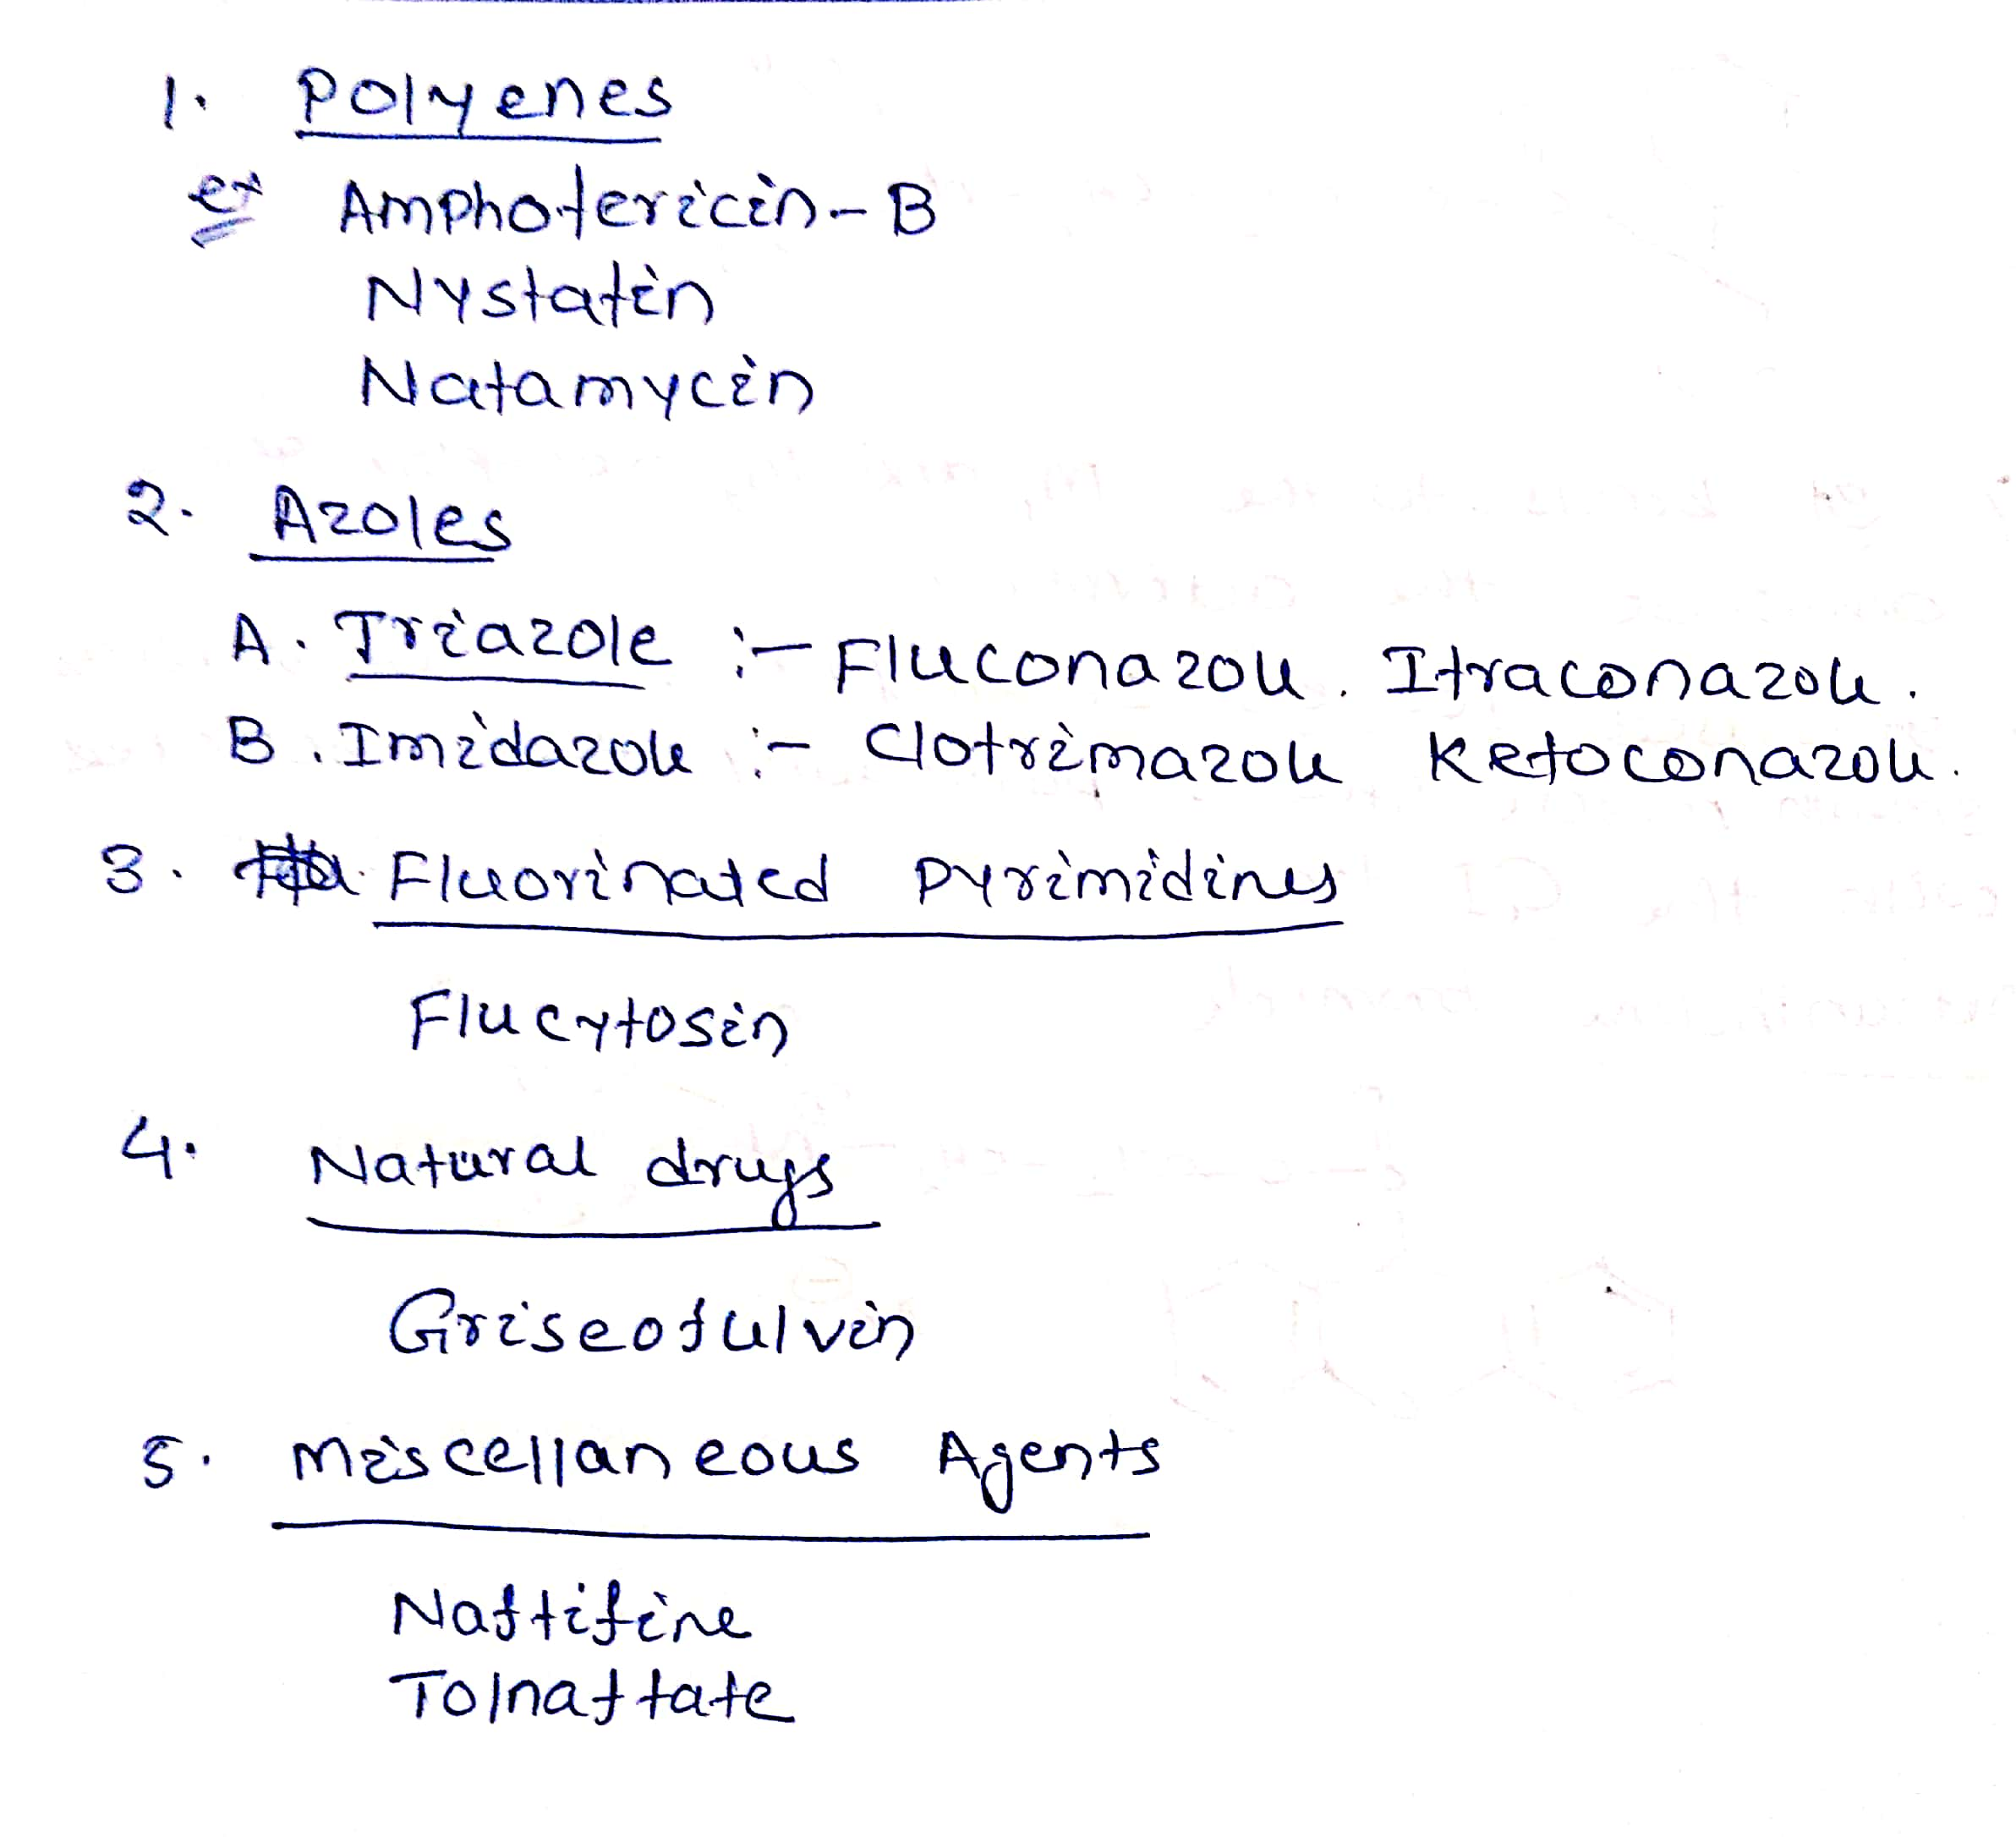 1. Polyenes
ex Amphotericin-B
Nystatin
Natamycin
2. Azoles
A. Triazole :- Fluconazole. Itraconazole.
B. Imidazole :- Clotrimazole Ketoconazole.
3. Fluorinated Pyrimidines
Flucytosin
4. Natural drugs
Griseofulvin
5. Miscellaneous Agents
Naftifine
Tolnaftate